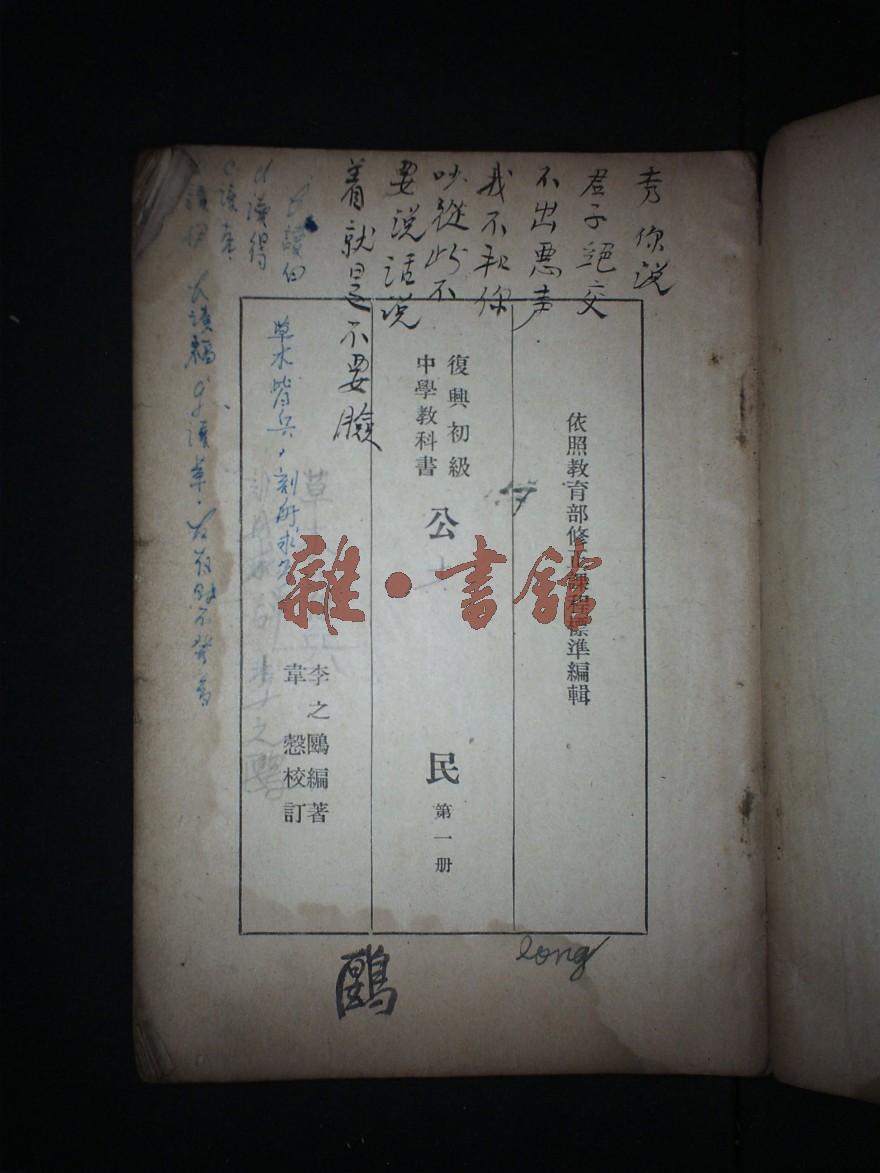 秀你说
君子絕交
不出惡声
我不和你
吵從此不
要说話说
着就是不要臉
依照教育部修正課程標準編輯
復興初級
中學教科書
公民
第一册
李之鷗編著
韋慤校訂
草木皆兵,刻舟求
b讀伯
d讀得
c讀
雜·書館
鷗
long